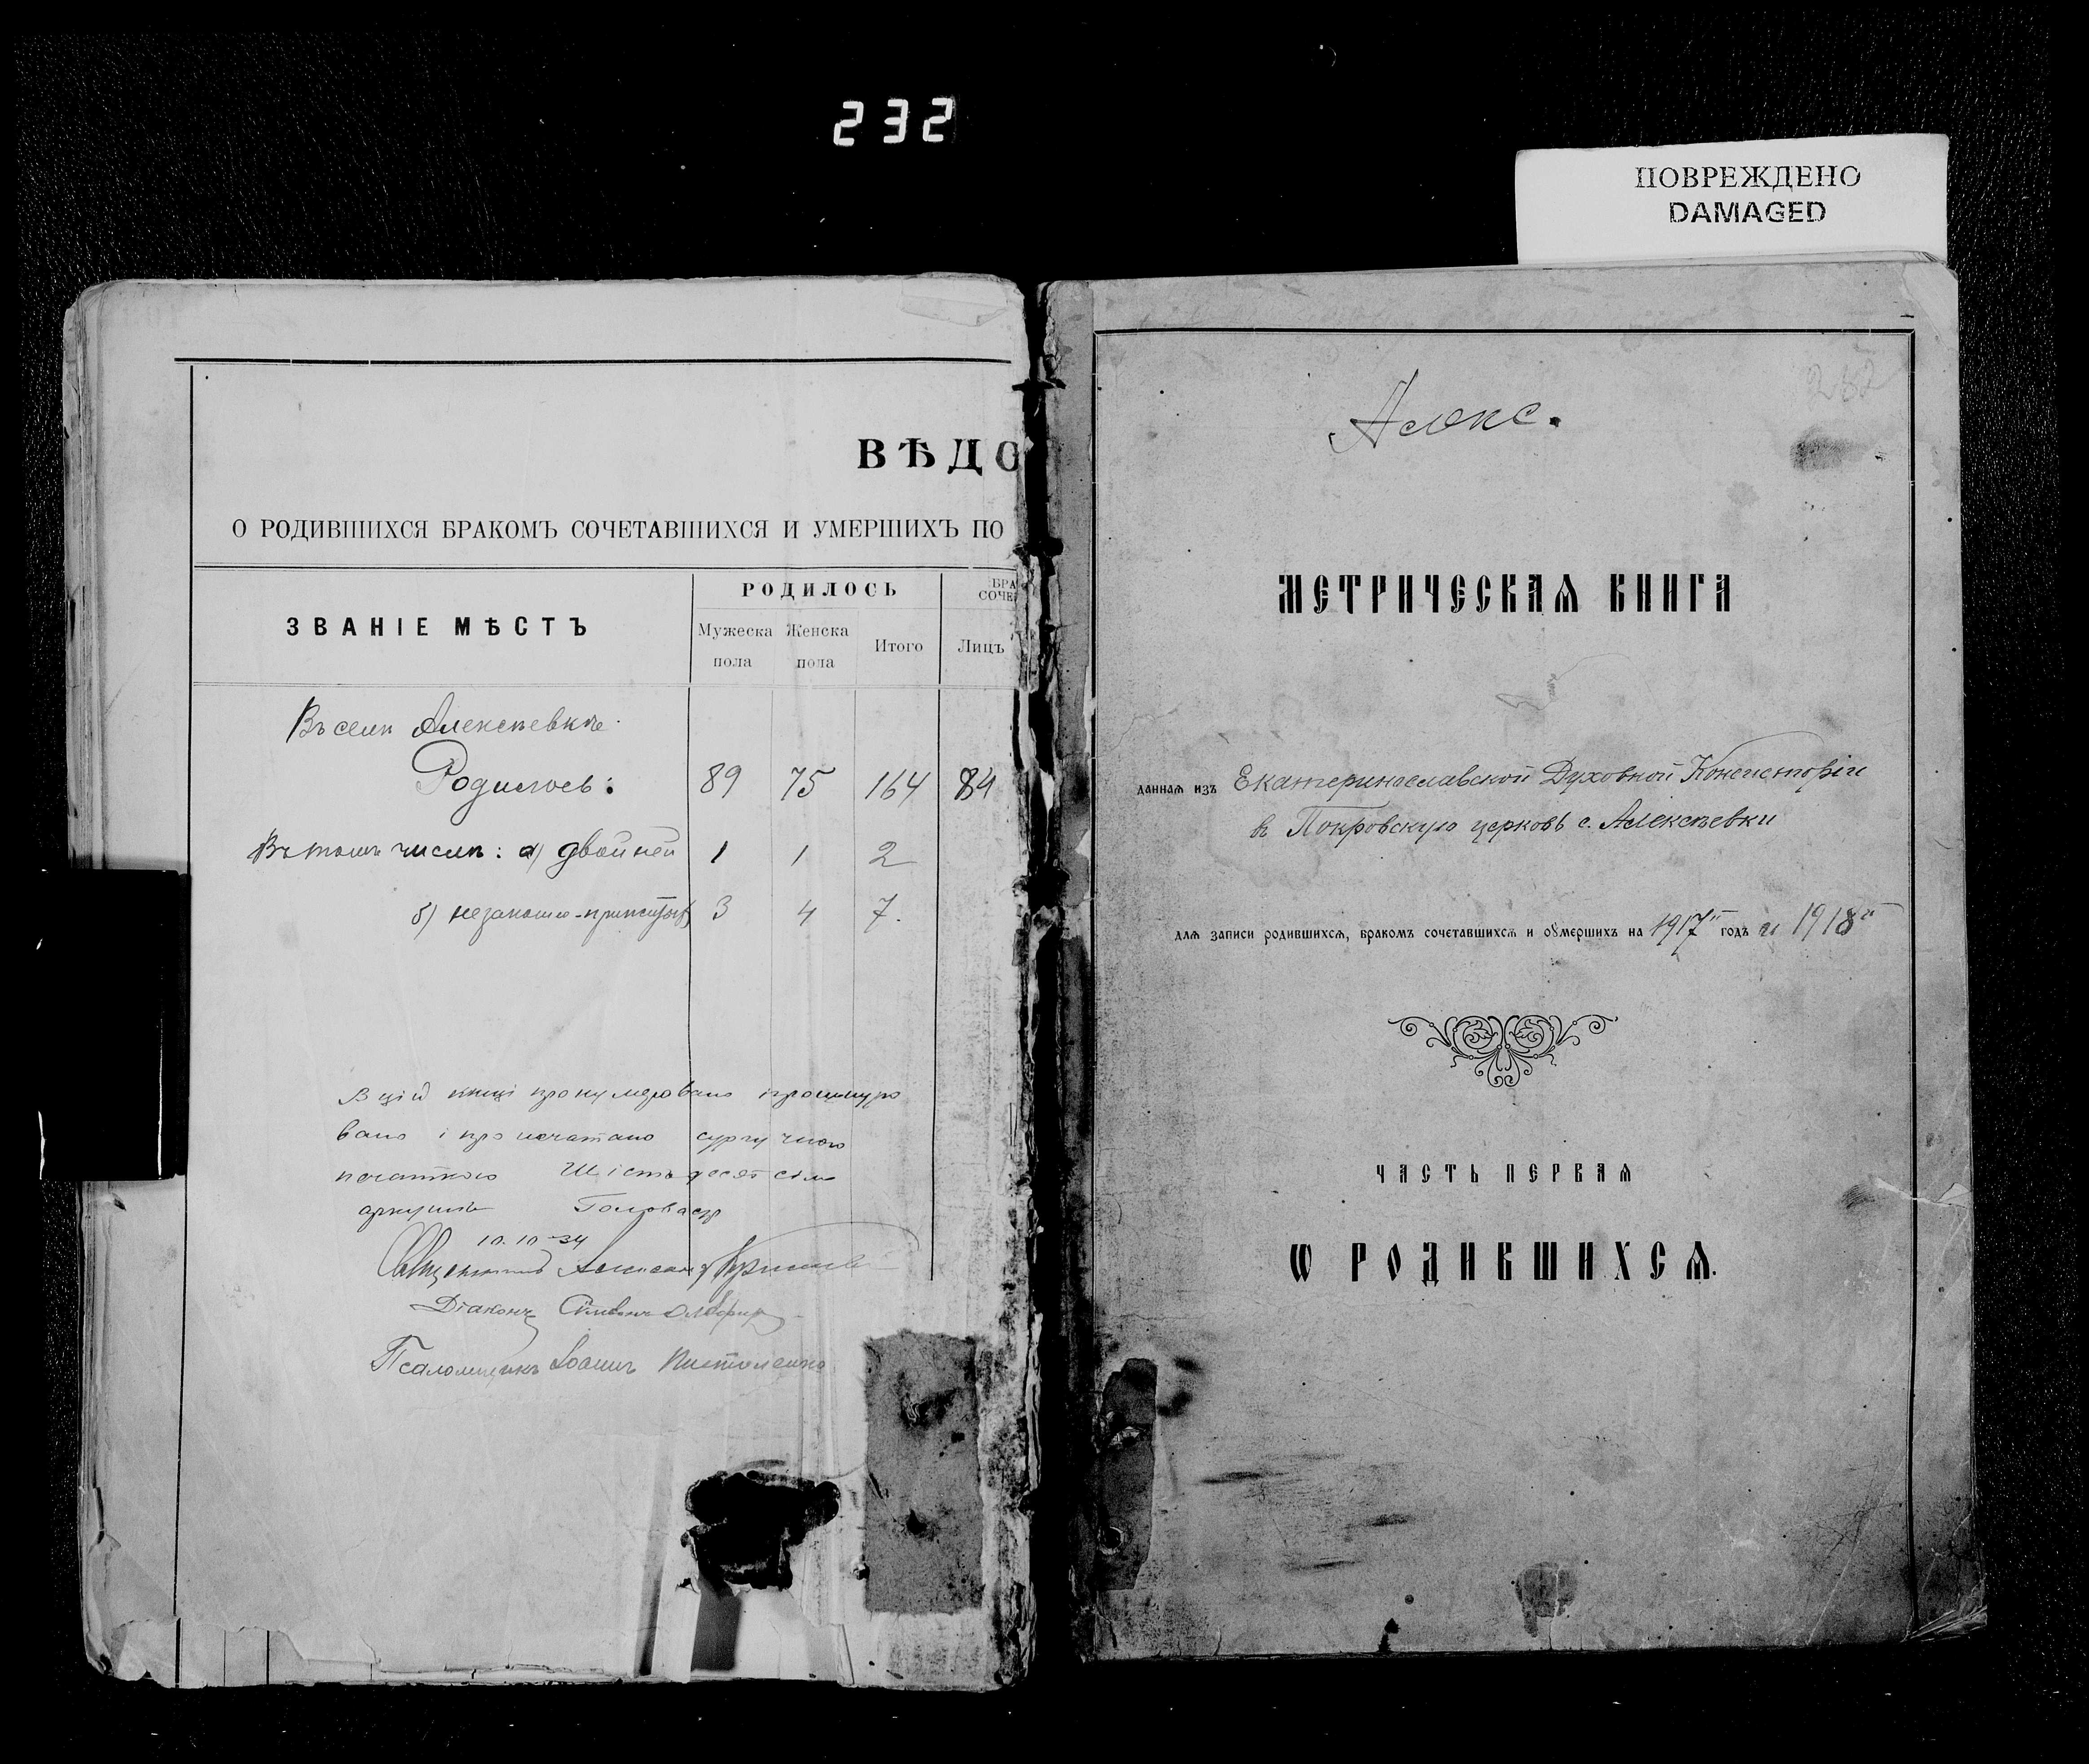 232
ПОВРЕЖДЕНО
DAMAGED
ВѢДО
О РОДИВШИХСЯ БРАКОМЪ СОЧЕТАВШИХСЯ И УМЕРШИХЪ ПО
ЗВАНІЕ МѢСТЪ
РОДИЛОСЬ
БРА
СОЧЕ
Мужеска пола
Женска пола
Итого
Лицъ
Въ селѣ Алексѣевкѣ
Родилось: 89 75 164 84
Въ томъ числѣ: а) двойней 1 1 2
б) незаконно-прижитыхъ 3 4 7.
В цій книзі пронумеровано і прошнуро
вано і пропечатано сургучною
печаткою Шістьдесят сім
аркушів
10.10-34
Священникъ
Діаконъ
Псаломщикъ Іоаннъ
Алекс.
МЕТРИЧЕСКАѦ КНИГА
даннаѧ изъ Екатеринославской Духовной Консисторіи
въ Покровскую церковь с. Алексѣевки
длѧ записи родившихсѧ, бракомъ сочетавшихсѧ и оумершихъ на 1917й годъ и 1918й
ЧАСТЬ ПЕРВАѦ
Ѡ РОДИВШИХСѦ.